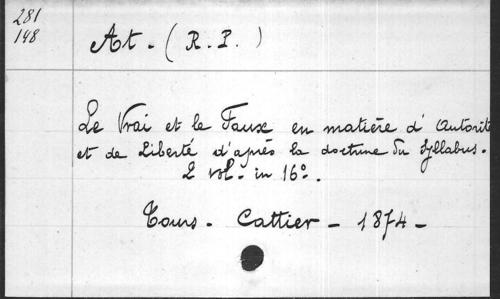 281
148
At. (R. P.)
Le Vrai et le Faux en matière d'Autorité
et de Liberté d'après la doctrine du Syllabus.
2 vol. in 16°.
Tours. Cattier - 1874 -